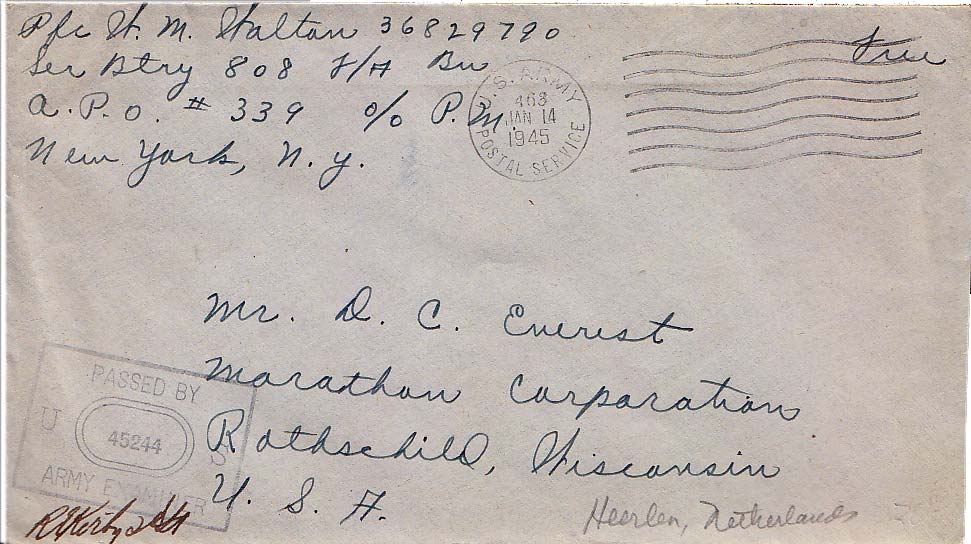 Pfc W. M. Walton 36829790
Free
Ser Btry 808 F/A Bn
A.P.O. # 339 c/o P.M.
New York, N.Y.
U.S. ARMY
463
JAN 14
1945
POSTAL SERVICE
Mr. D. C. Everest
Marathon Corporation
Rothschild, Wisconsin
U. S. A.
PASSED BY
U 45244 S
ARMY EXAMINER
Heerlen, Netherlands